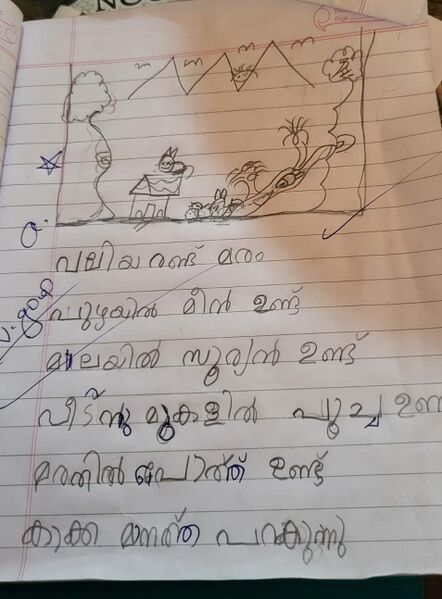 വലിയ രണ്ട് മരം
പുഴയിൽ മീൻ ഉണ്ട്
മലയിൽ സൂര്യൻ ഉണ്ട്
വീടിനു മുകളിൽ പൂച്ച ഉണ
മരത്തിൽ പോത്ത് ഉണ്ട്
കാക്ക മാനത്ത പറക്കുന്നു